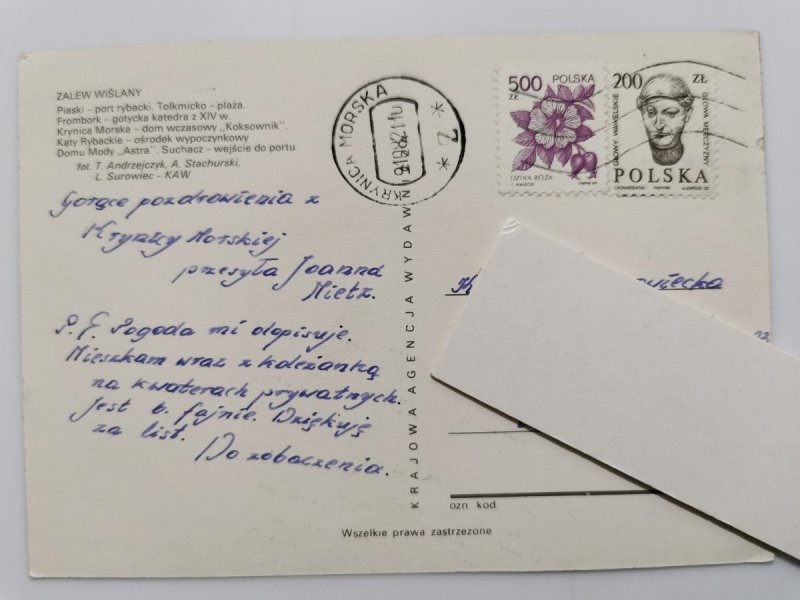 ZALEW WIŚLANY
Piaski – port rybacki. Tolkmicko – plaża.
Frombork – gotycka katedra z XIV w.
Krynica Morska – dom wczasowy „Koksownik".
Kąty Rybackie – ośrodek wypoczynkowy
Domu Mody „Astra". Suchacz – wejście do portu
fot. T. Andrzejczyk, A. Stachurski,
L. Surowiec – KAW
Gorące pozdrowienia z
Krynicy Morskiej
przesyła Joanna
Mietz.
P.S. Pogoda mi dopisuje.
Mieszkam wraz z koleżanką
na kwaterach prywatnych.
Jest b. fajnie. Dziękuję
za list.
Do zobaczenia.
KRAJOWA AGENCJA WYDAWN
KRYNICA MORSKA
* 2 *
500
ZŁ
POLSKA
DZIKA RÓŻA
200 ZŁ
GŁOWY WAWELSKIE
GŁOWA MĘŻCZYZNY
POLSKA
ozn. kod
Wszelkie prawa zastrzeżone